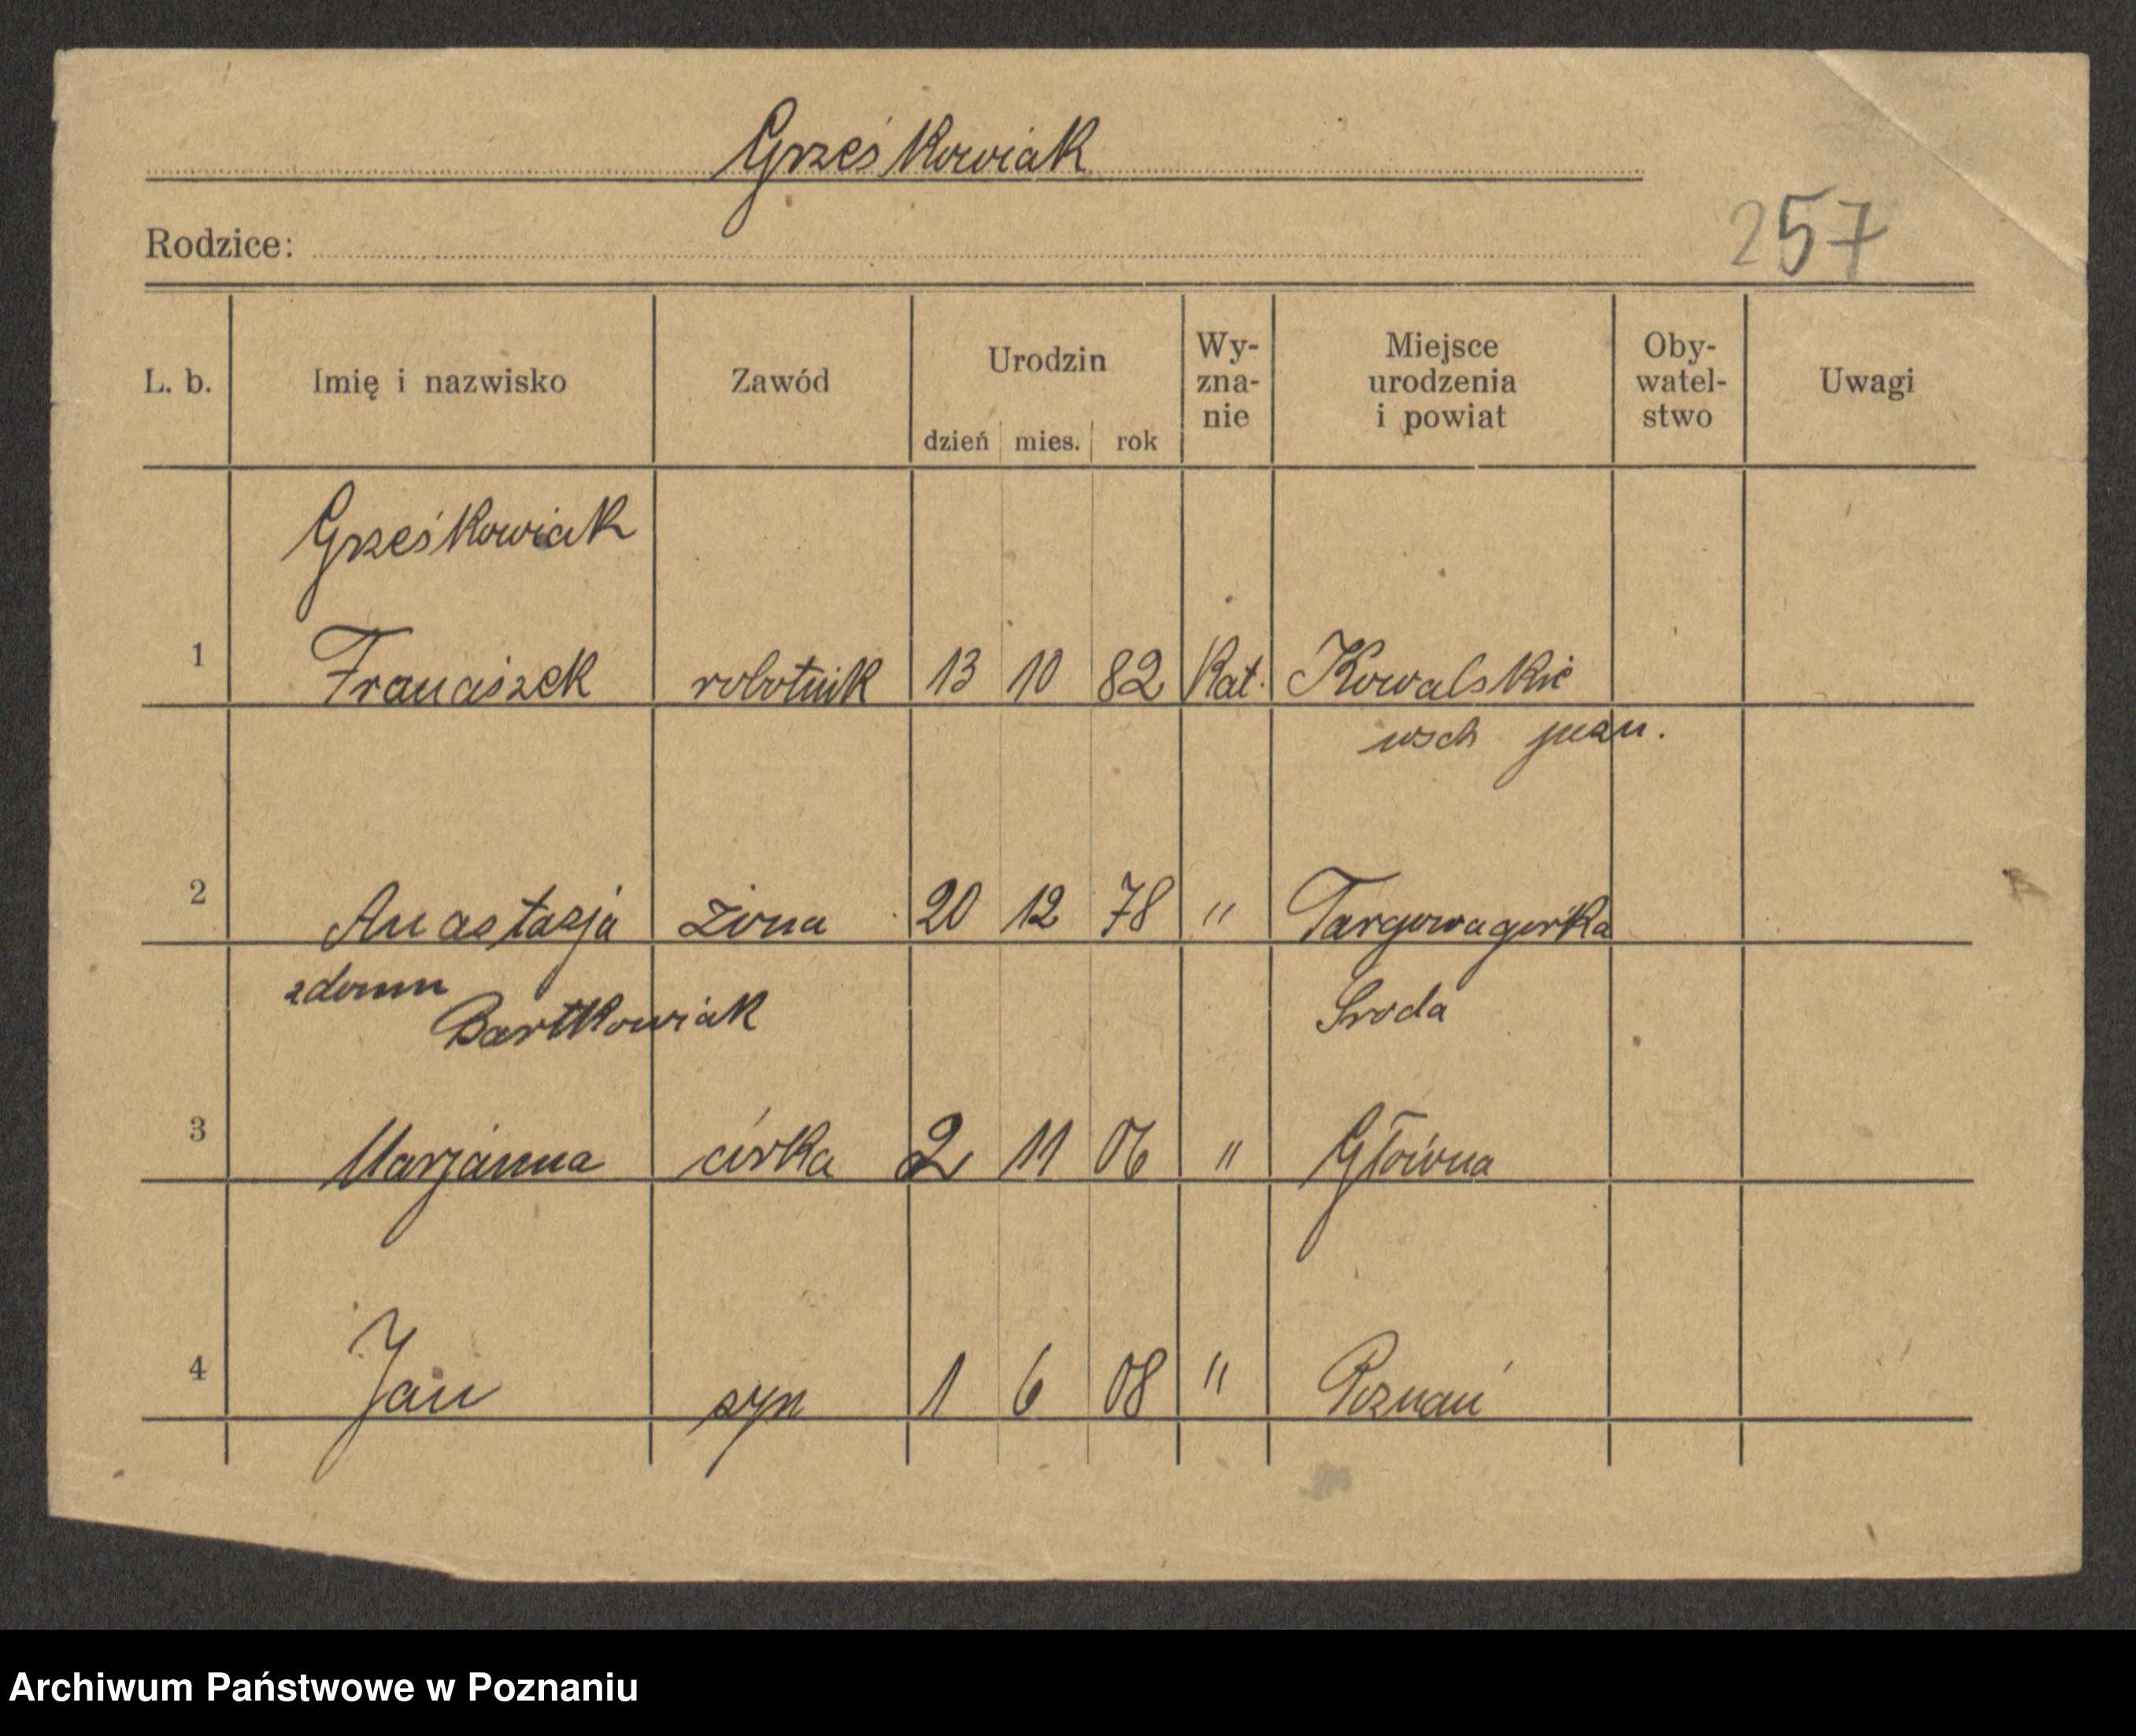 Grześkowiak
Rodzice:
257
L. b. Imię i nazwisko Zawód Urodzin dzień mies. rok Wy-zna-nie Miejsce urodzenia i powiat Oby-watel-stwo Uwagi
Grześkowiak
1 Franciszek robotnik 13 10 82 Kat. Kowalskie
wsch pozn.
2 Anastazja żona 20 12 78 " Targowagórka
zdomu Bartkowiak Sroda
3 Marjanna córka 2 11 06 " Główna
4 Jan syn 1 6 08 " Poznań
Archiwum Państwowe w Poznaniu